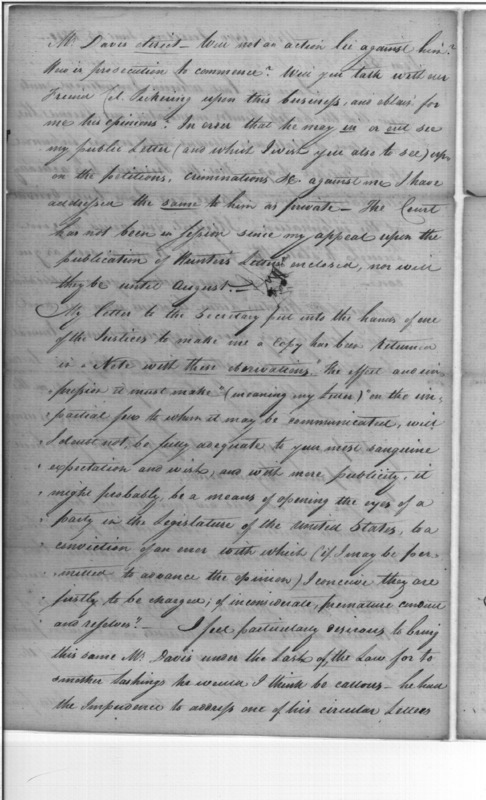 Mr Davis direct — Will not an action lie against him?
How is prosecution to commence? Will you talk with our
Friend Col Pickering upon this business, and obtain for
me his opinions? In order that he may in or out see
my public Letter (and which I wish you also to see) up-
on the petitions, criminations &c against me I have
addressed the same to him as private — The Court
has not been in session since my appeal upon the
publication of Hunters Letter inclosed, nor will
they be until August. —
My letter to the Secretary put into the hands of one
of the Justices to make me a copy has been returned
in a Note with these observations. "The effect and im-
pression it must make" (meaning my Letter) "on the im-
partial few to whom it may be communicated, will
I doubt not, be fully adequate to your most sanguine
expectation and wish, and with more publicity, it
might probably, be a means of opening the eyes of a
party in the Legislature of the United States, to a
conviction of an error with which (if I may be per-
mitted to advance the opinion) I conceive they are
justly to be charged; of inconsiderate, premature conduct
and resolves"? — I feel particularly desirous to bring
this same Mr Davis under the Lash of the Law for to
smother Lashings he would I think be callous — he had
the Impudence to address one of his circular Letters